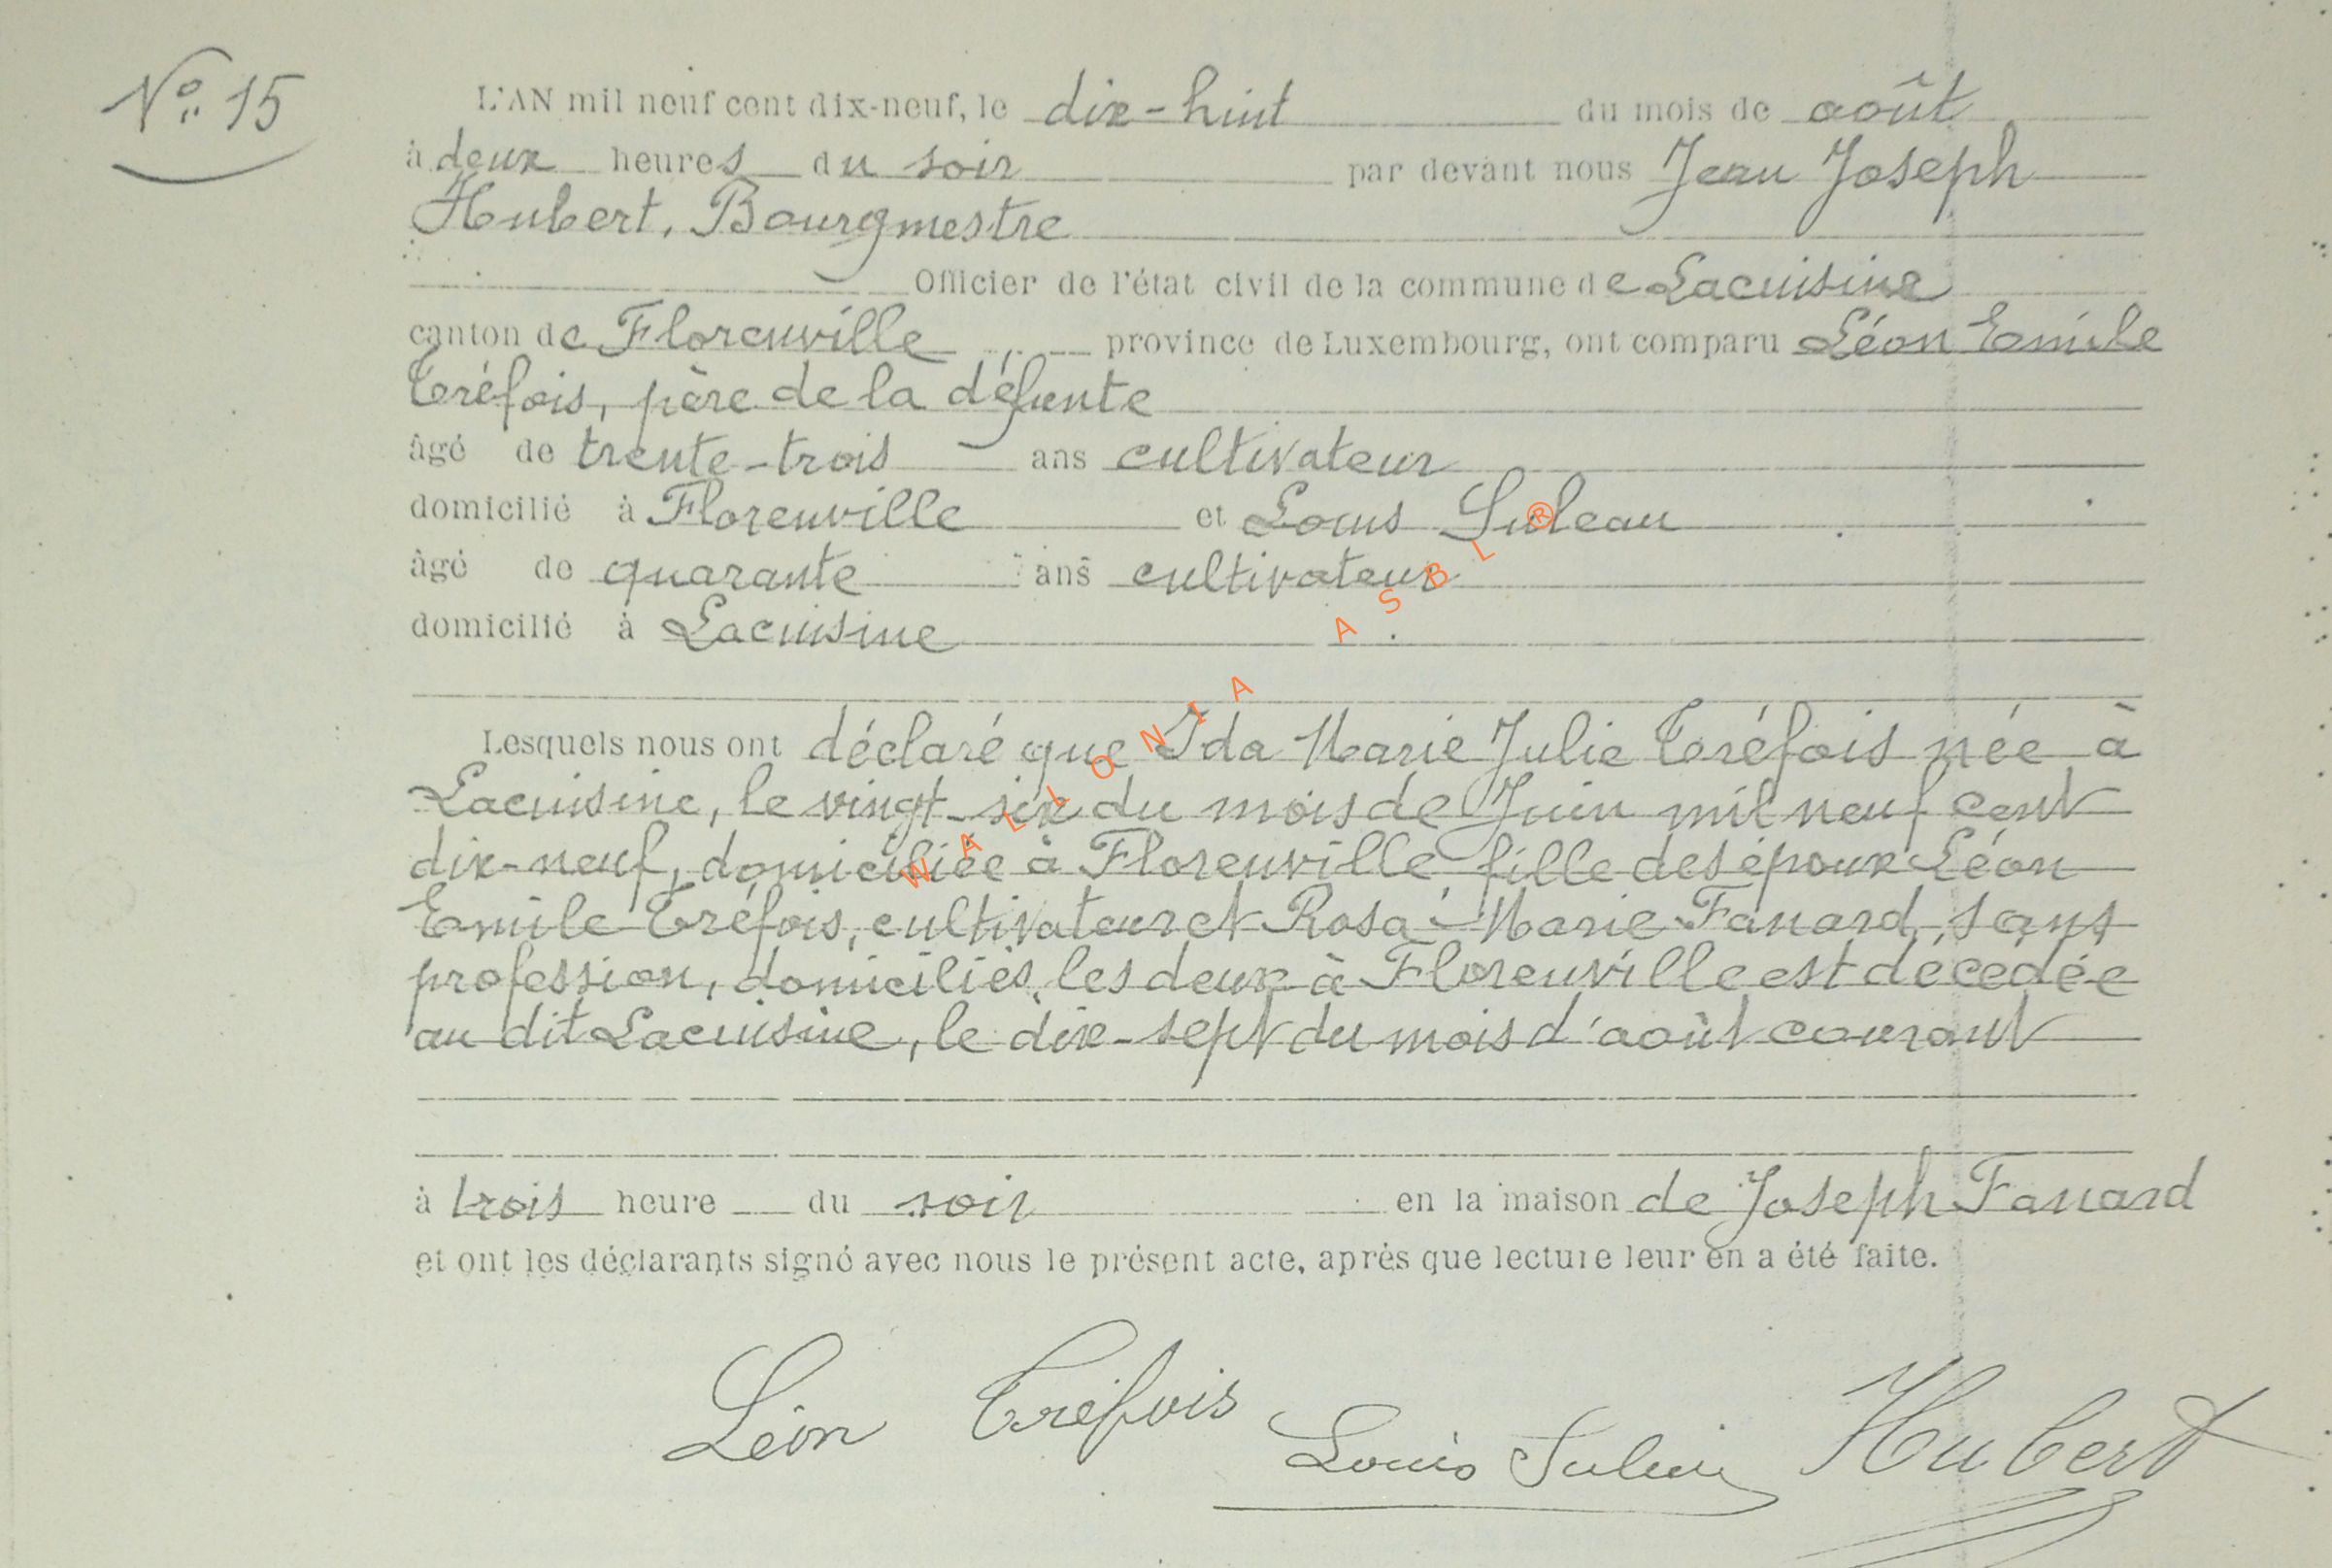 No. 15
L'AN mil neuf cent dix-neuf, le dix-huit du mois de août
à deux heures du soir par devant nous Jean Joseph
Hubert, Bourgmestre
Officier de l'état civil de la commune de Lacuisine
canton de Florenville province de Luxembourg, ont comparu Léon Emile
Tréfois, père de la défunte
âgé de trente-trois ans cultivateur
domicilié à Florenville et Louis Suleau
âgé de quarante ans cultivateur
domicilié à Lacuisine
Lesquels nous ont déclaré que Ida Marie Julie Tréfois née à
Lacuisine, le vingt-six du mois de Juin mil neuf cent
dix-neuf, domiciliée à Florenville fille des époux Léon
Emile Tréfois, cultivateur et Rosa Marie Fanard, sans
profession, domiciliés, les deux à Florenville est décedée
au dit Lacuisine, le dix-sept du mois d'août courant
à trois heure du soir en la maison de Joseph Fanard
et ont les déclarants signé avec nous le présent acte, après que lecture leur en a été faite.
Léon Tréfois Louis Hubert
WALLONIA ASBL ®